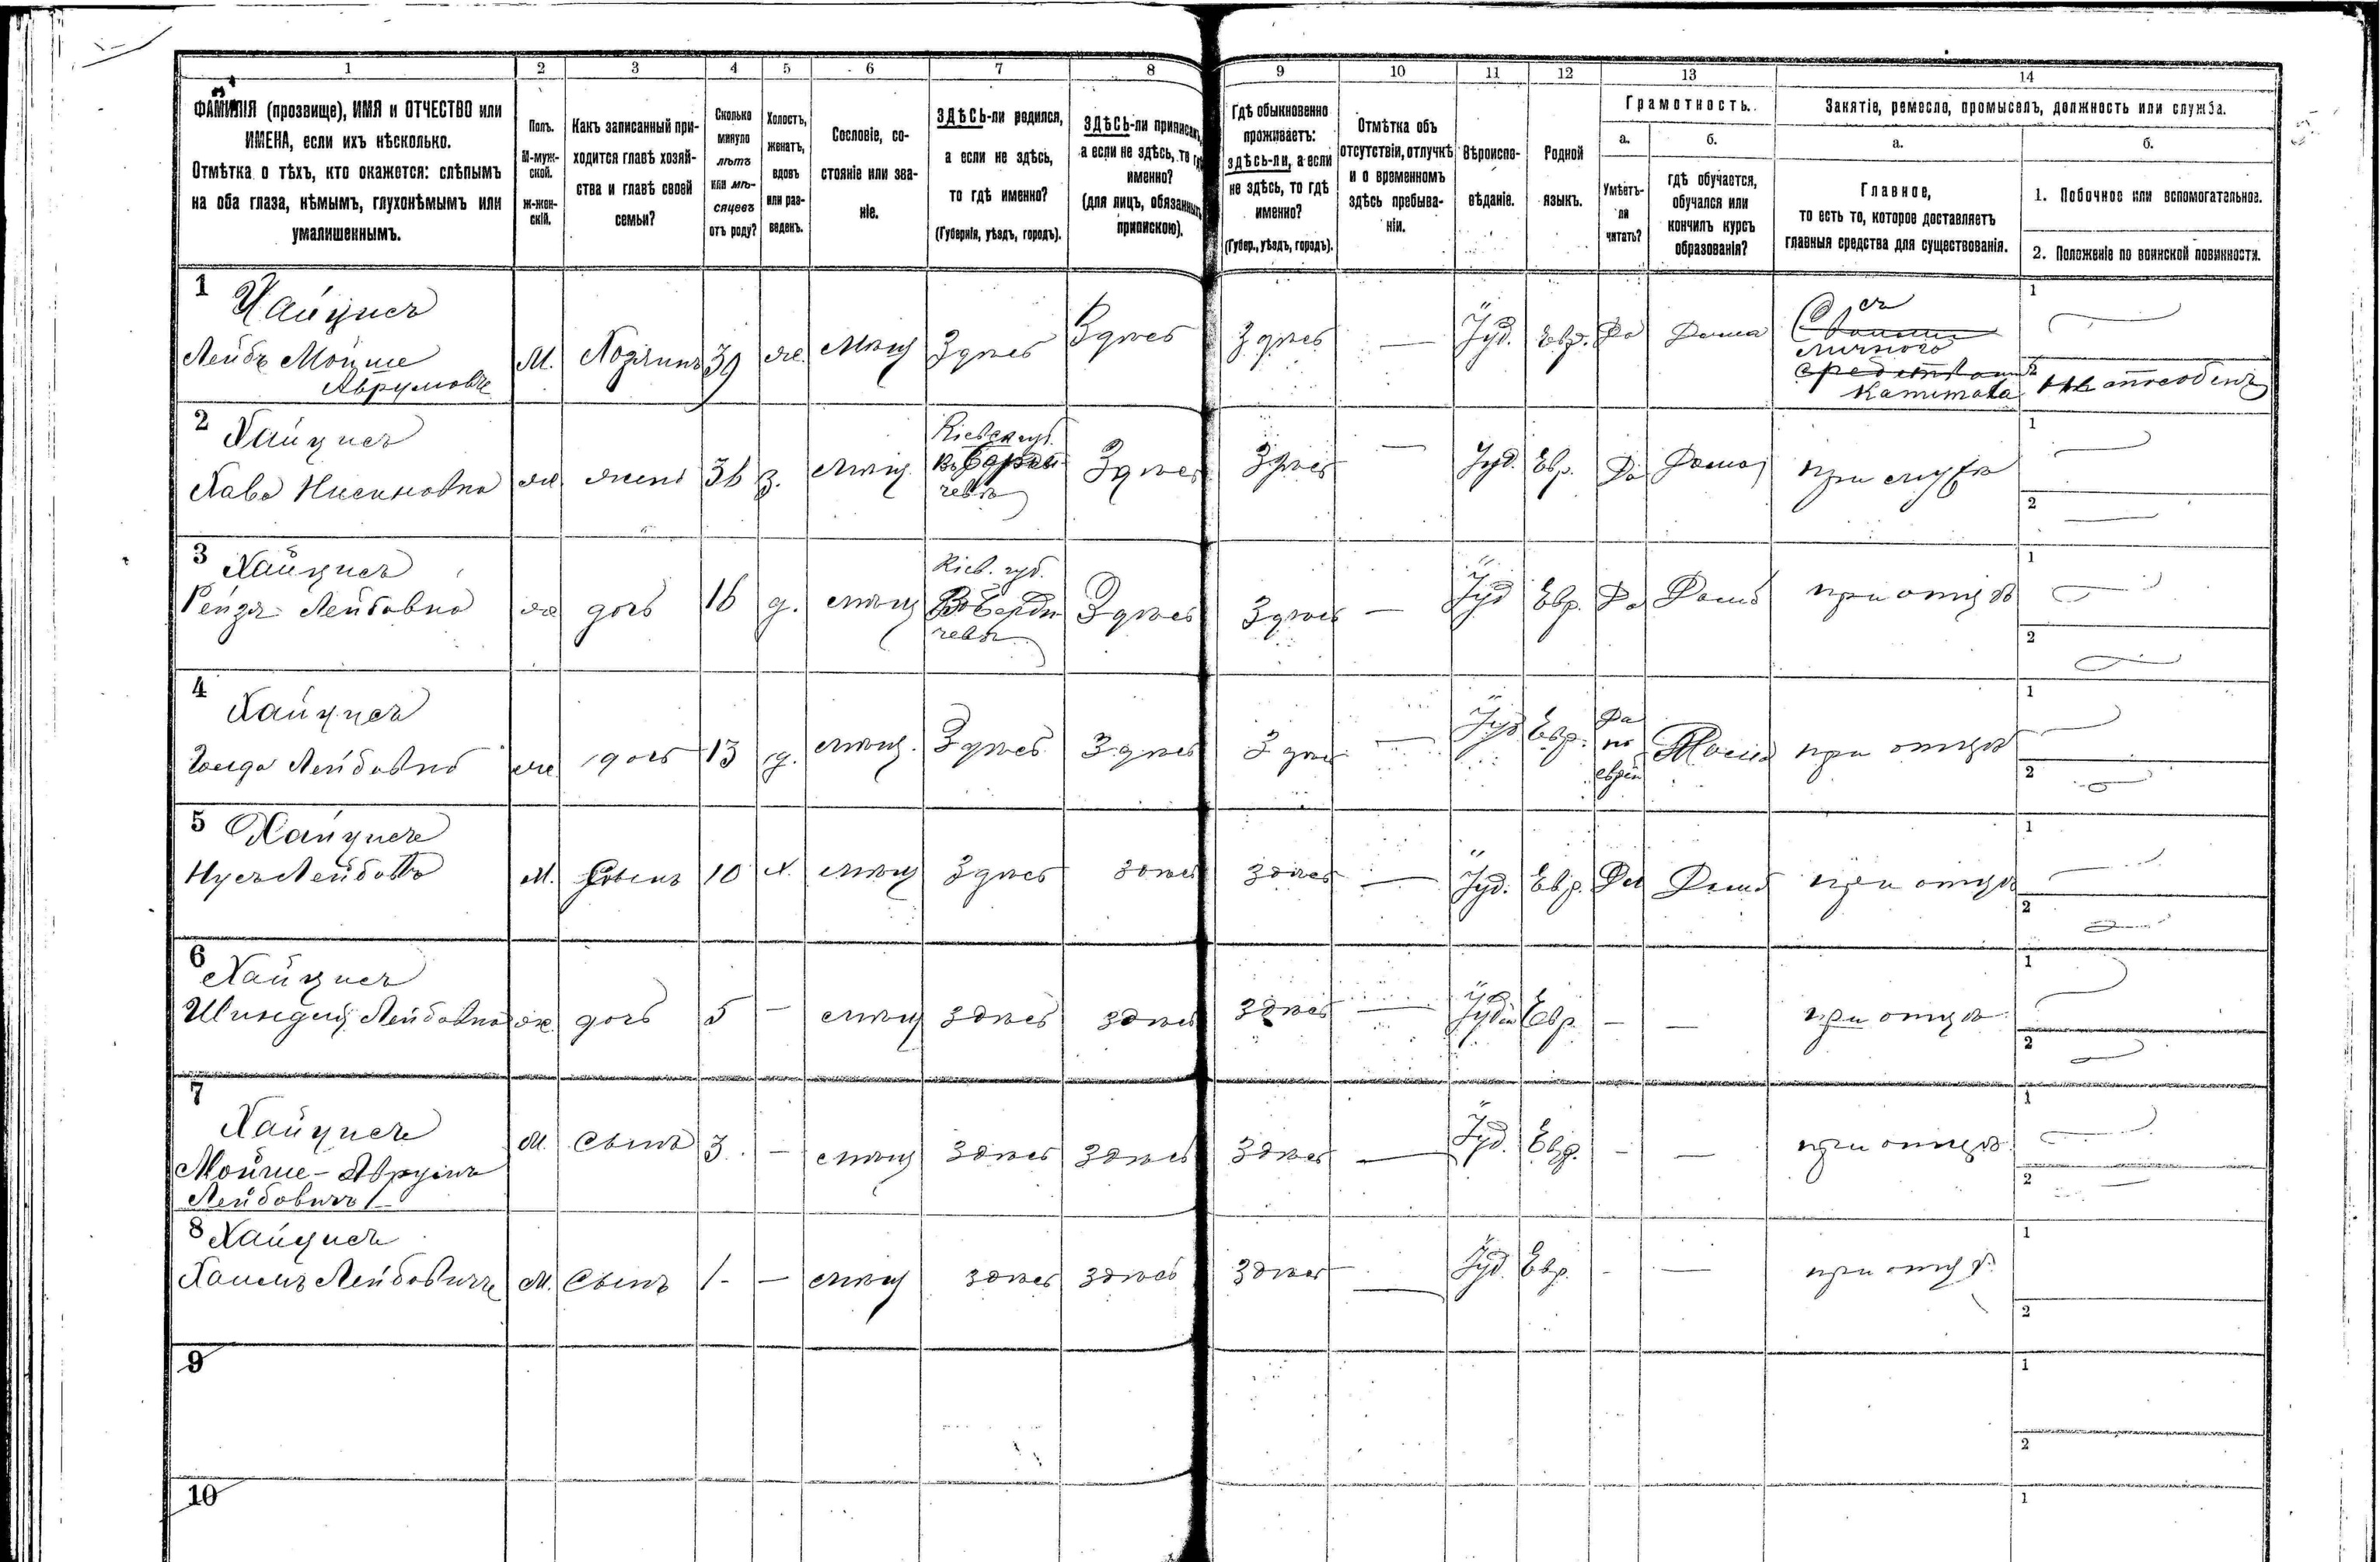 1 2 3 4 5 6 7 8 9 10 11 12 13 14
ФАМИЛІЯ (прозвище), ИМЯ и ОТЧЕСТВО или
ИМЕНА, если ихъ нѣсколько.
Отмѣтка о тѣхъ, кто окажется: слѣпымъ
на оба глаза, нѣмымъ, глухонѣмымъ или
умалишеннымъ.
Полъ.
М-муж-
ской.
ж-жен-
скій.
Какъ записанный при-
ходится главѣ хозяй-
ства и главѣ своей
семьи?
Сколько
минуло
лѣтъ
или мѣ-
сяцевъ
отъ роду?
Холостъ,
женатъ,
вдовъ
или раз-
веденъ.
Сословіе, со-
стояніе или зва-
ніе.
ЗДѢСЬ-ли родился,
а если не здѣсь,
то гдѣ именно?
(Губернія, уѣздъ, городъ).
ЗДѢСЬ-ли приписанъ,
а если не здѣсь, то гдѣ
именно?
(для лицъ, обязанныхъ
припискою).
Гдѣ обыкновенно
проживаетъ:
здѣсь-ли, а если
не здѣсь, то гдѣ
именно?
(Губер., уѣздъ, городъ).
Отмѣтка объ
отсутствіи, отлучкѣ
и о временномъ
здѣсь пребыва-
ніи.
Вѣроиспо-
вѣданіе.
Родной
языкъ.
Грамотность.
а.
Умѣетъ-
ли
читать?
б.
гдѣ обучается,
обучался или
кончилъ курсъ
образованія?
Занятіе, ремесло, промыселъ, должность или служба.
а.
Главное,
то есть то, которое доставляетъ
главныя средства для существованія.
б.
1. Побочное или вспомогательное.
2. Положеніе по воинской повинности.
1 Хайцисъ
Лейбъ Мойше
Аврумовъ
М. Хозяинъ 39 ж. мѣщ Здѣсь Здѣсь Здѣсь — Іуд. Евр. Да Дома
съ
личного
капитала
1
2 не способенъ
2 Хайцисъ
Хава Нисиновна ж жена 36 з. мѣщ
Кіевск губ.
въ Берди
чевѣ
Здѣсь Здѣсь — Іуд. Евр. Да Дома при мужѣ
1
2
3 Хайцисъ
Рейзя Лейбовна ж дочь 16 д. мѣщ
Кіев. губ.
Въ Берди
чевѣ
Здѣсь Здѣсь — Іуд Евр. Да Дома при отцѣ
1
2
4 Хайцисъ
Голда Лейбовна ж дочь 13 д. мѣщ. Здѣсь Здѣсь Здѣсь — Іуд Евр.
Да
по
еврей
Дома при отцѣ
1
2
5 Хайцисъ
Нусъ Лейбовъ М. Сынъ 10 х. мѣщ Здѣсь здѣсь здѣсь — Іуд. Евр. Да Дома при отцѣ
1
2
6 Хайцисъ
Шиндля Лейбовна ж. дочь 5 — мѣщ здѣсь здѣсь здѣсь — Іудей Евр — — при отцѣ
1
2
7
Хайцисъ
Мойше-Аврумъ
Лейбовичъ
М. Сынъ 3. — мѣщ здѣсь здѣсь здѣсь — Іуд. Евр. - — при отцѣ
1
2
8 Хайцисъ
Хаимъ Лейбовичъ М. Сынъ 1- — мѣщ здѣсь здѣсь здѣсь — Іуд. Евр. - — при отцѣ
1
2
9
1
2
10
1